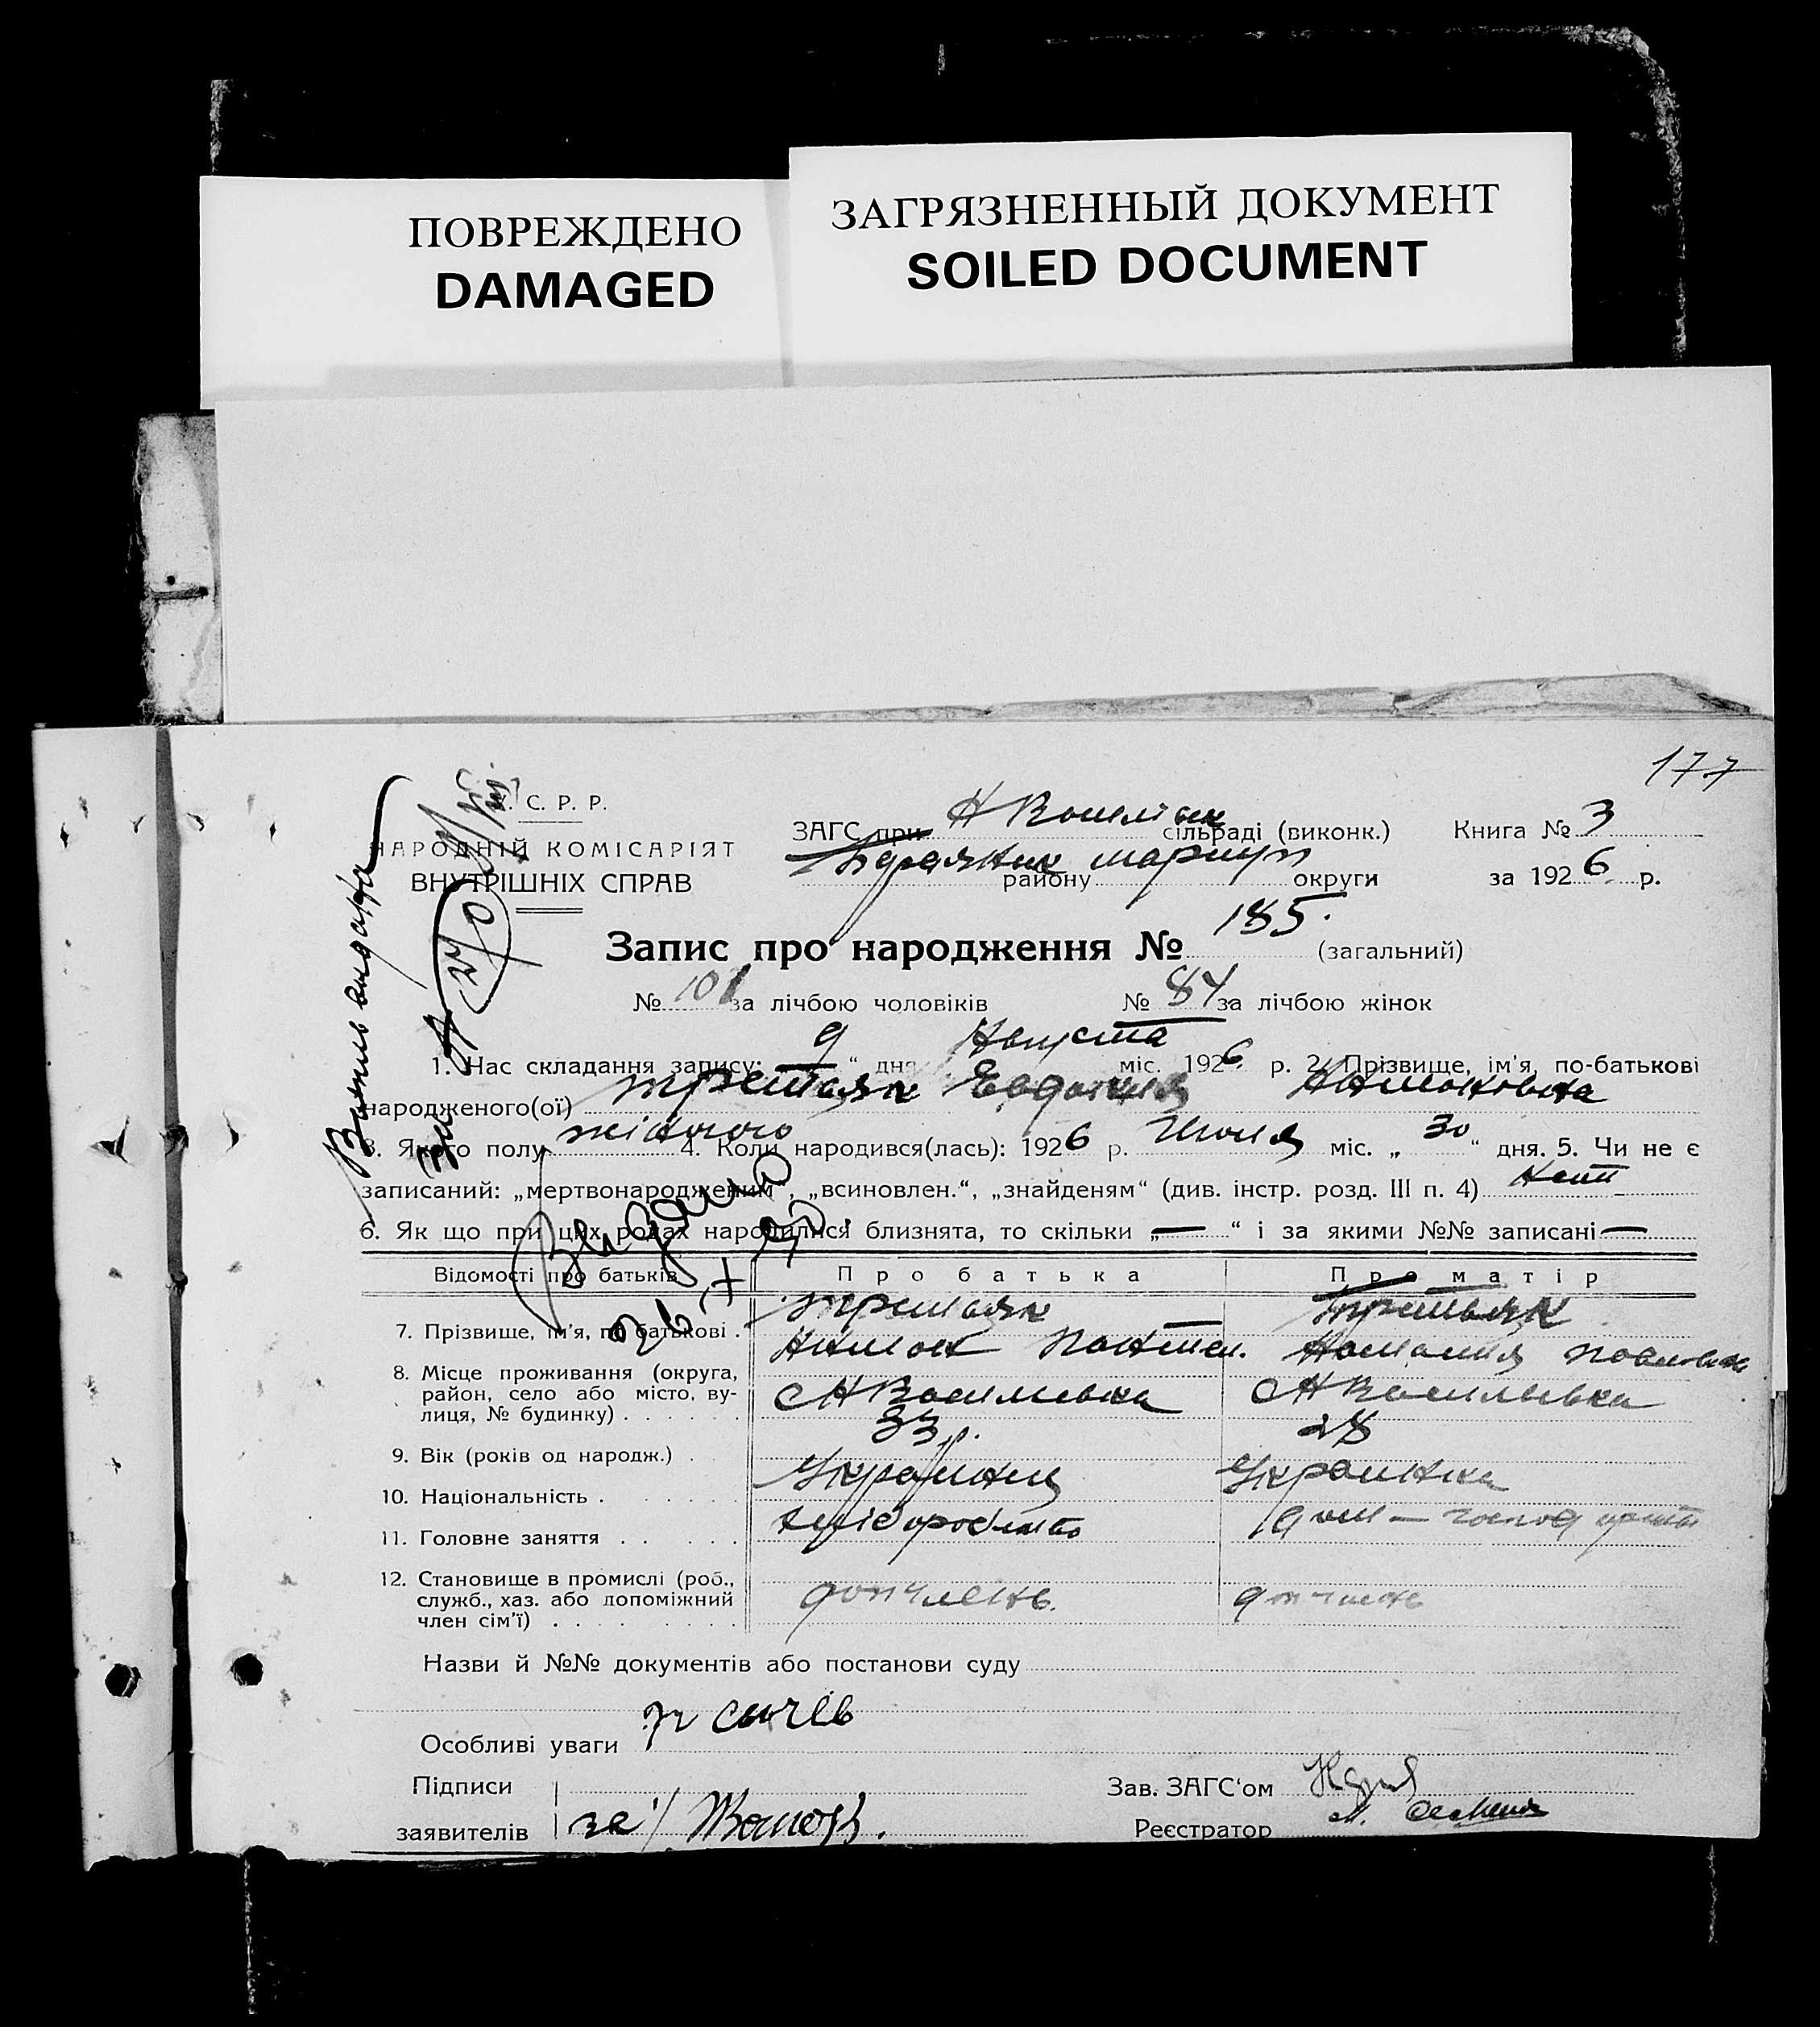 ПОВРЕЖДЕНО
DAMAGED
ЗАГРЯЗНЕННЫЙ ДОКУМЕНТ
SOILED DOCUMENT
177
У. С. Р. Р.
НАРОДНІЙ КОМІСАРІЯТ
ВНУТРІШНІХ СПРАВ
ЗАГС при сільраді (виконк.) Книга № 3
району Мариуп округи за 1926 р.
Запис про народження № 185. (загальний)
№ 101 за лічбою чоловіків № 84 за лічбою жінок
1. Час складання запису: „9“ дня Августа міс. 1926 р. 2. Прізвище, ім'я, по-батькові
народженого(ої) Третьяк Евдокия Антоновна
3. Якого полу жіночого 4. Коли народився(лась): 1926 р. Июля міс. „30“ дня. 5. Чи не є
записаний: „мертвонародженим“, „всиновлен.“, „знайденям“ (див. інстр. розд. III п. 4) нет
6. Як що при цих родах народилися близнята, то скільки „—“ і за якими №№ записані —
Відомості про батьків Про батька Про матір
7. Прізвище, ім'я, по батькові . Третьяк Антон Пантел. Третьяк
8. Місце проживання (округа,
район, село або місто, ву-
лиця, № будинку) . . . . . . с Н Васильевка с Н Васильевка
9. Вік (років од народж.) . 33 р. 28
10. Національність . . . . . . Украинец Украинка
11. Головне заняття . . . . . хліборобство дом — господ
12. Становище в промислі (роб.,
служб., хаз. або допоміжний
член сім'ї) . . . . . . . . доп член. доп член
Назви й №№ документів або постанови суду
Особливі уваги
Підписи
заявителів
Зав. ЗАГС‘ом
Реєстратор
Выдано